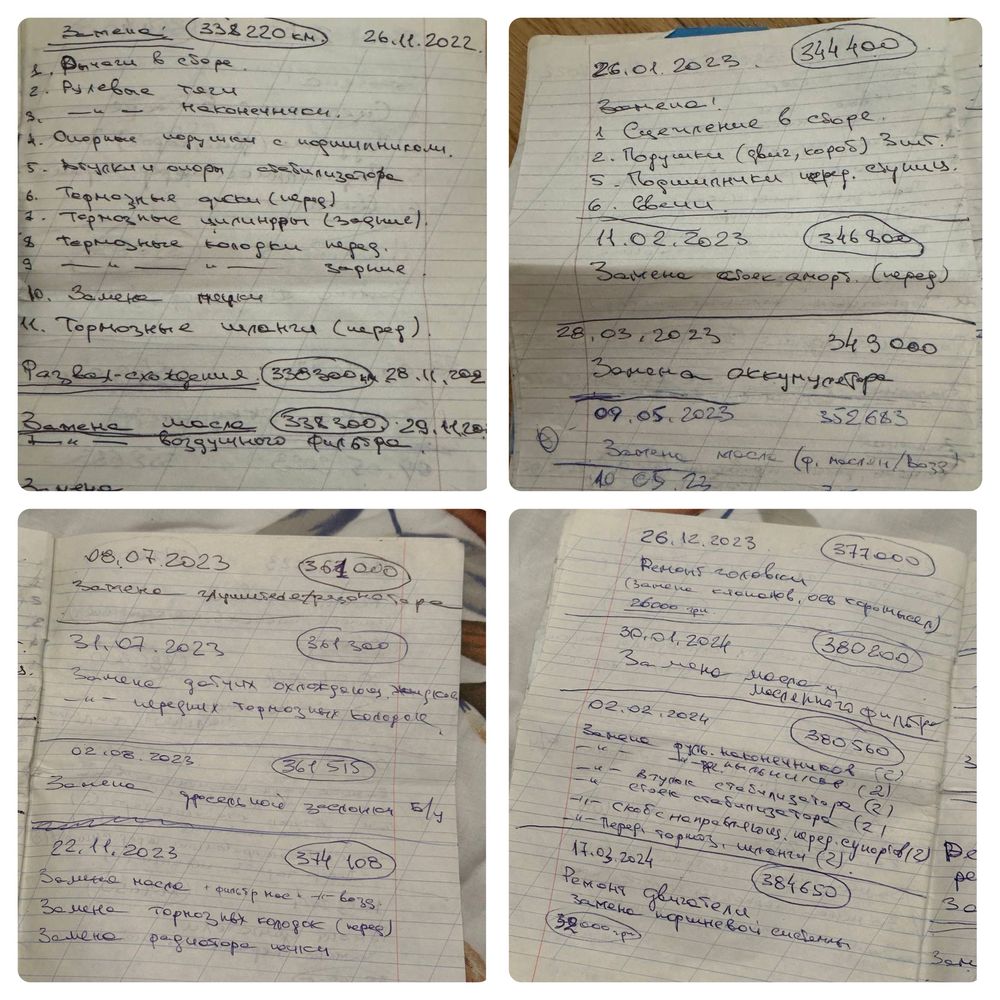 Замена: 338220 км 26.11.2022.
1. Рычаги в сборе
2. Рулевые тяги
3. —"— наконечники.
4. Опорные подушки с подшипником.
5. Втулки и опоры стабилизатора
6. Тормозные диски (перед)
7. Тормозные цилиндры (задние).
8 Тормозные колодки перед.
9 —"— —"— задние
10. Замена печки
11. Тормозные шланги (перед).
Развал-схождения 338300 км 28.11.202
Замена масла 338300 29.11.20
—"— воздушного фильтра
Замена
26.01.2023. 344400
Замена!
1 Сцепление в сборе.
2. Подушки (двиг, короб) 3шт.
5. Подшипники перед. ступиц.
6. Свечи.
11.02.2023 346800
Замена стоек аморт. (перед)
28.03.2023 349000
Замена аккумулятора
09.05.2023 352683
Замена масла (ф. маслян/Возд
10 05.23
08.07.2023 361000
Замена глушителя/резонатора
31.07.2023 361300
Замена датчик охлаждающ. жидкос
"— передних тормозных колодок
02.08.2023 361515
Замена дросельной заслонки Б/у
22.11.2023 374 108
Замена масла + фильтр мас + -"- возд.
Замена тормозных колодок (перед)
Замена радиатора печки
26.12.2023 377000
Ремонт головки
(Замена клапанов, ось коромысел)
26000 грн
30.01.2024 380200
Замена масла и
масляного фильтра
02.02.2024 380560
Замена руль. наконечников (2)
—"— —"— пыльников (2)
—"— втулок стабилизатора (2)
—"— стоек стабилизатора (2)
-"- скоб с направляющ. перед. супортов (2)
-"- Перед тормоз. шланги (2)
17.03.2024 384650
Ремонт двигателя.
Замена поршневой системы
32000 грн
Ре
ре
За
Зам